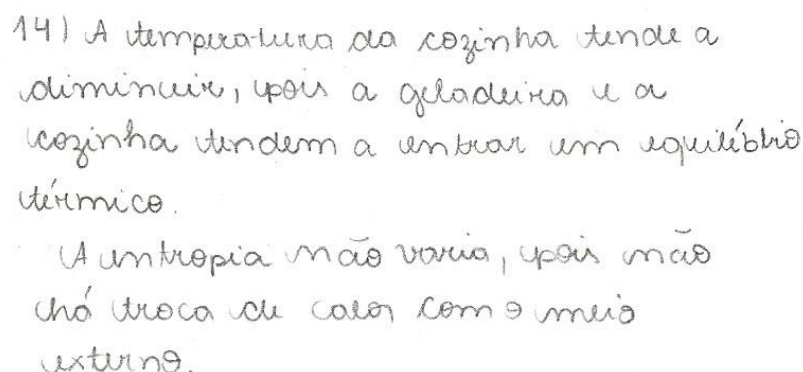 14) A temperatura da cozinha tende a
diminuir, pois a geladeira e a
cozinha tendem a entrar em equilíbrio
térmico.
A entropia não varia, pois não
há troca de calor com o meio
externo.